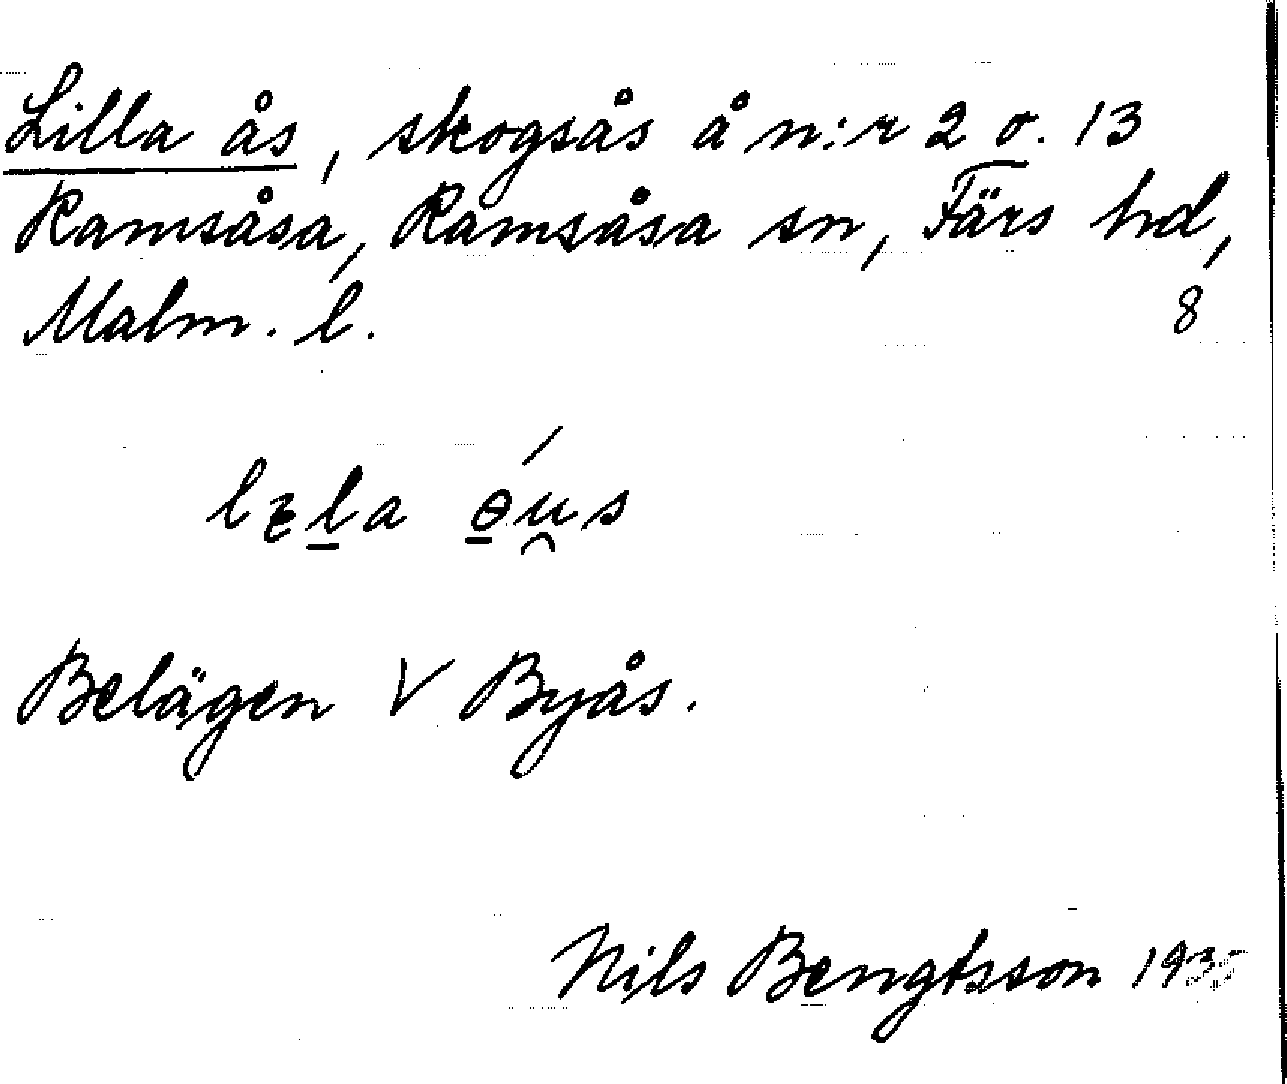 Lilla ås, skogsås å n:r 2 o. 13
Ramsåsa, Ramsåsa sn, Färs hd,
Malm. l. 8
lɪl̲a ɵ̲ú̯s
Belägen V Byås.
Nils Bengtsson 1935